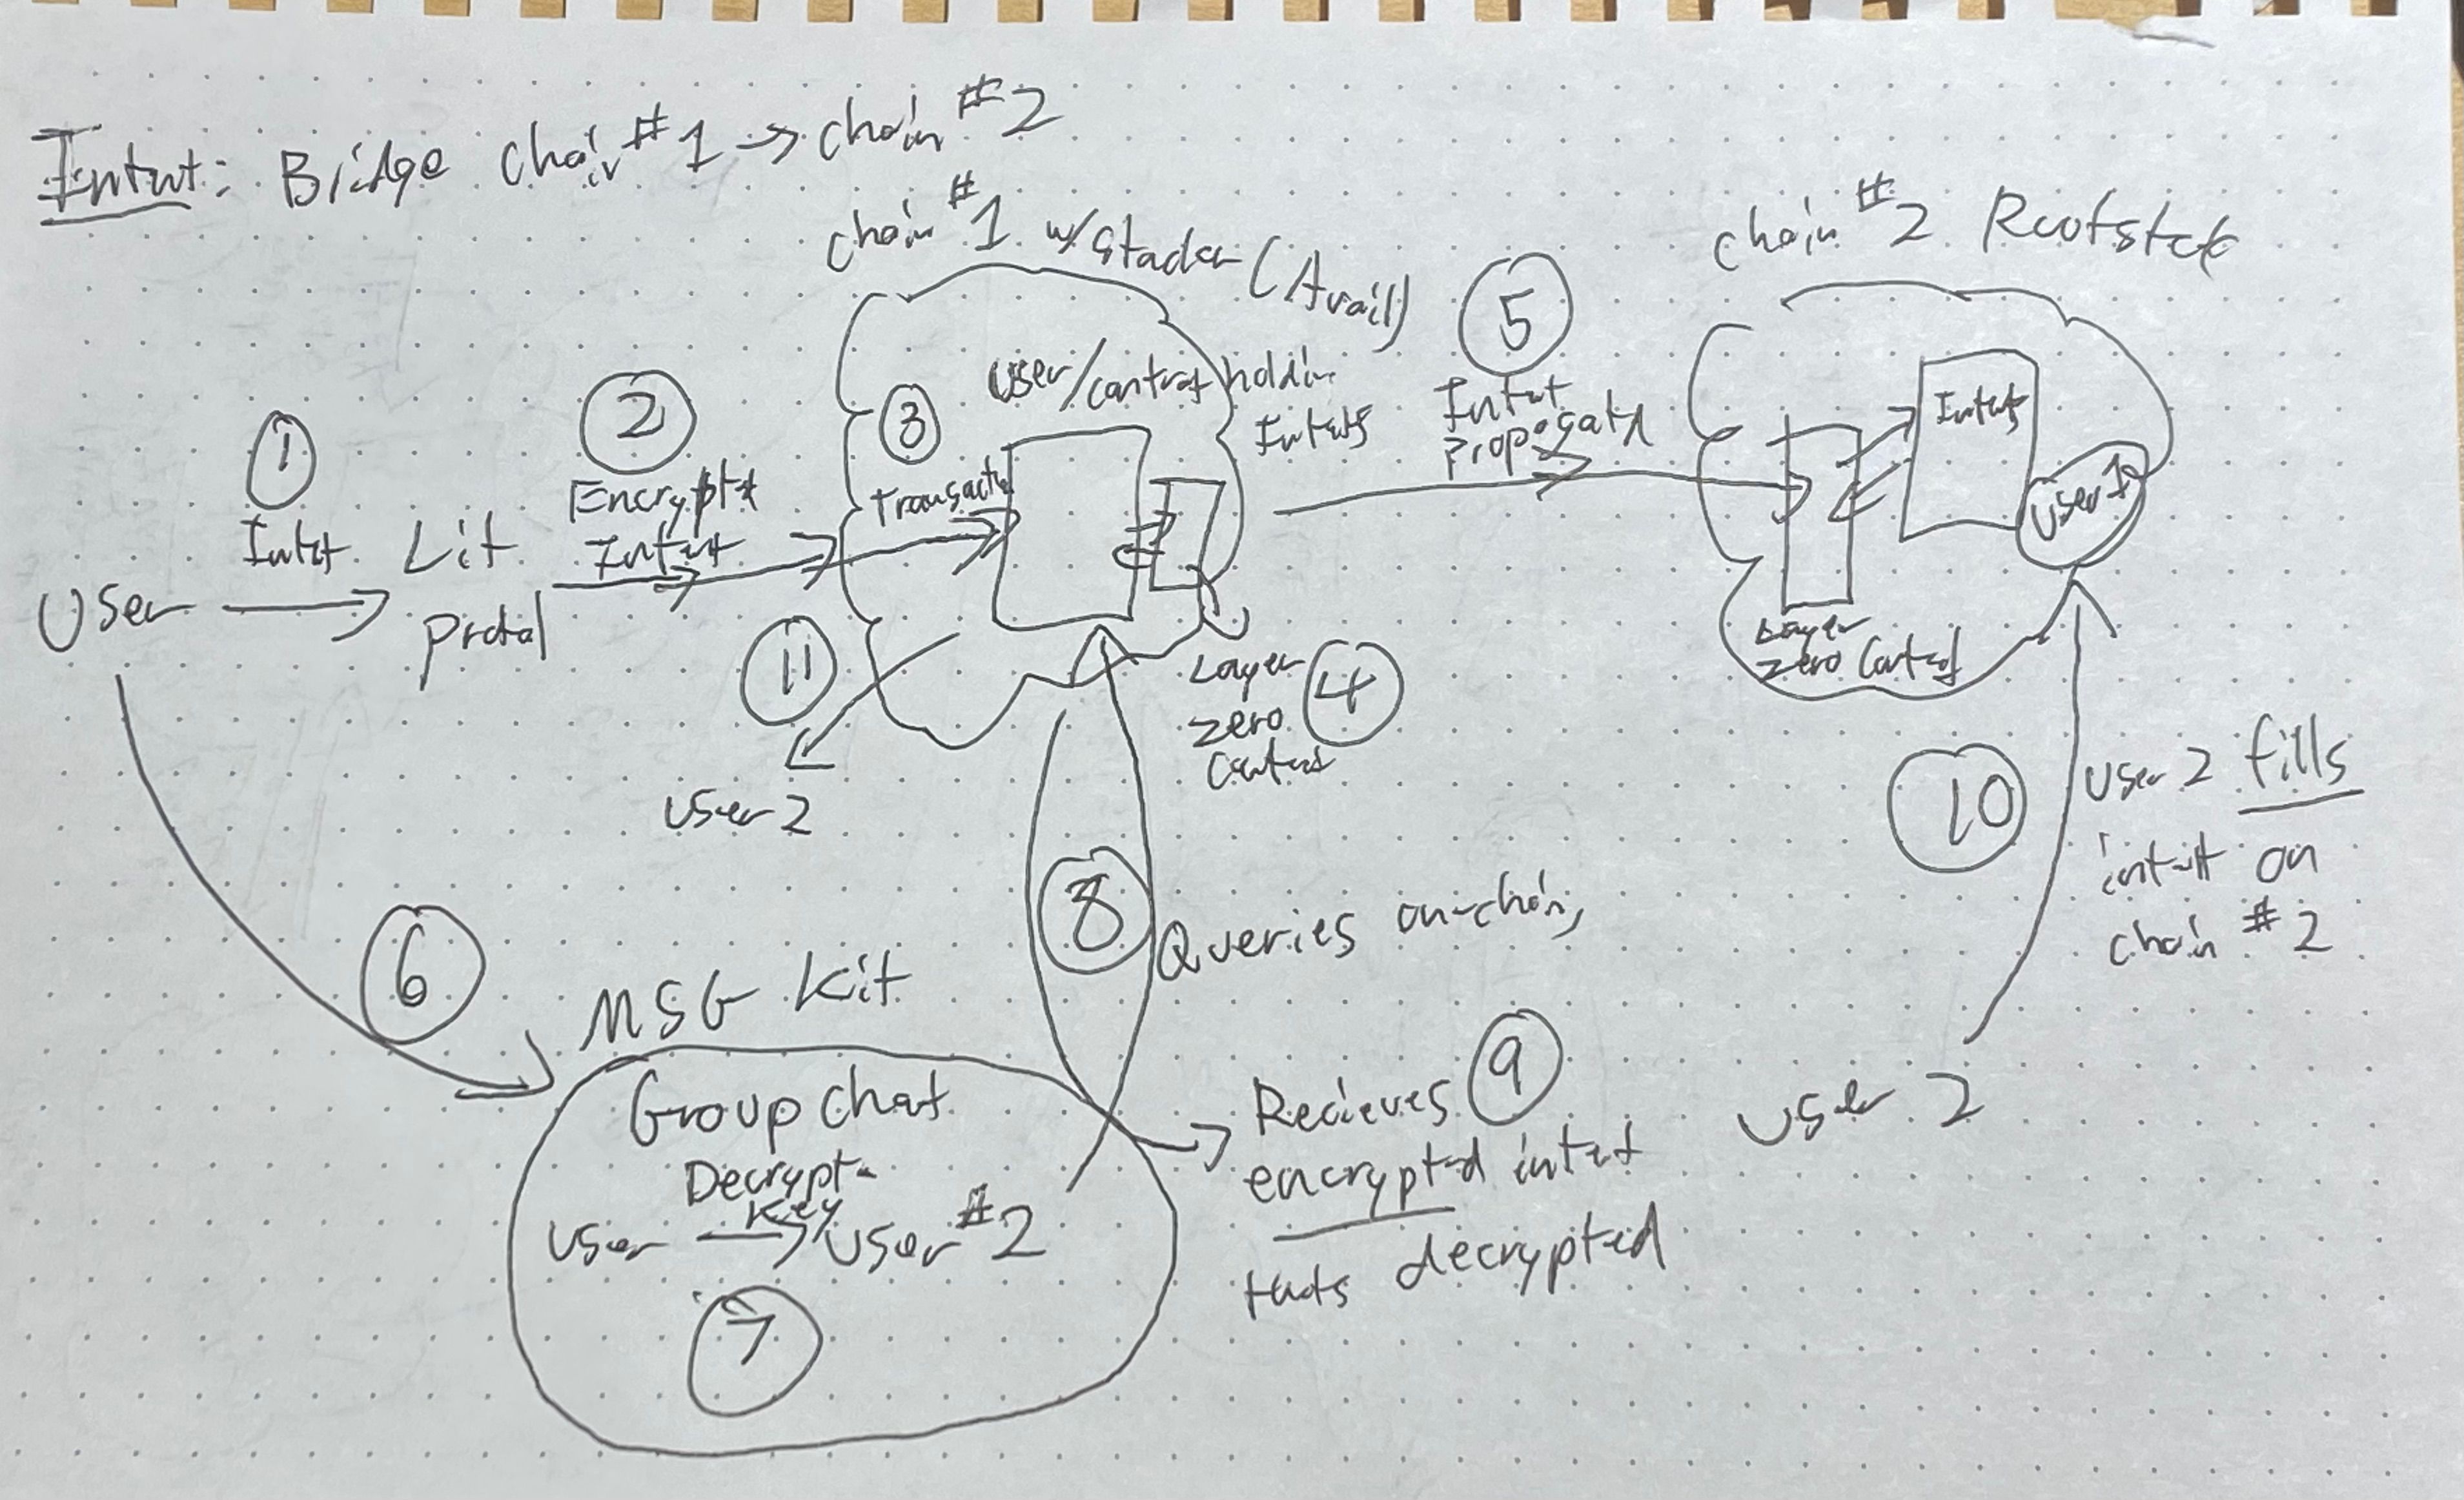 Intent: Bridge Chain #1 → Chain #2
Chain #1 w/ (Avail)
Chain #2 Rootstock
1
Intent
User
Lit
2
Encrypted
Intent
3
Transaction
User/contract holding
Intents
Layer
Zero
Contract
4
5
Intent
Propogated
Layer
Zero Contract
Intents
User 1
11
User 2
6
MSG Kit
Group Chat
Decrypt
Key
User → User #2
7
8
Queries on-chain,
Recieves 9
encrypted intent
thats decrypted
User 2
10
User 2 fills
intent on
chain #2